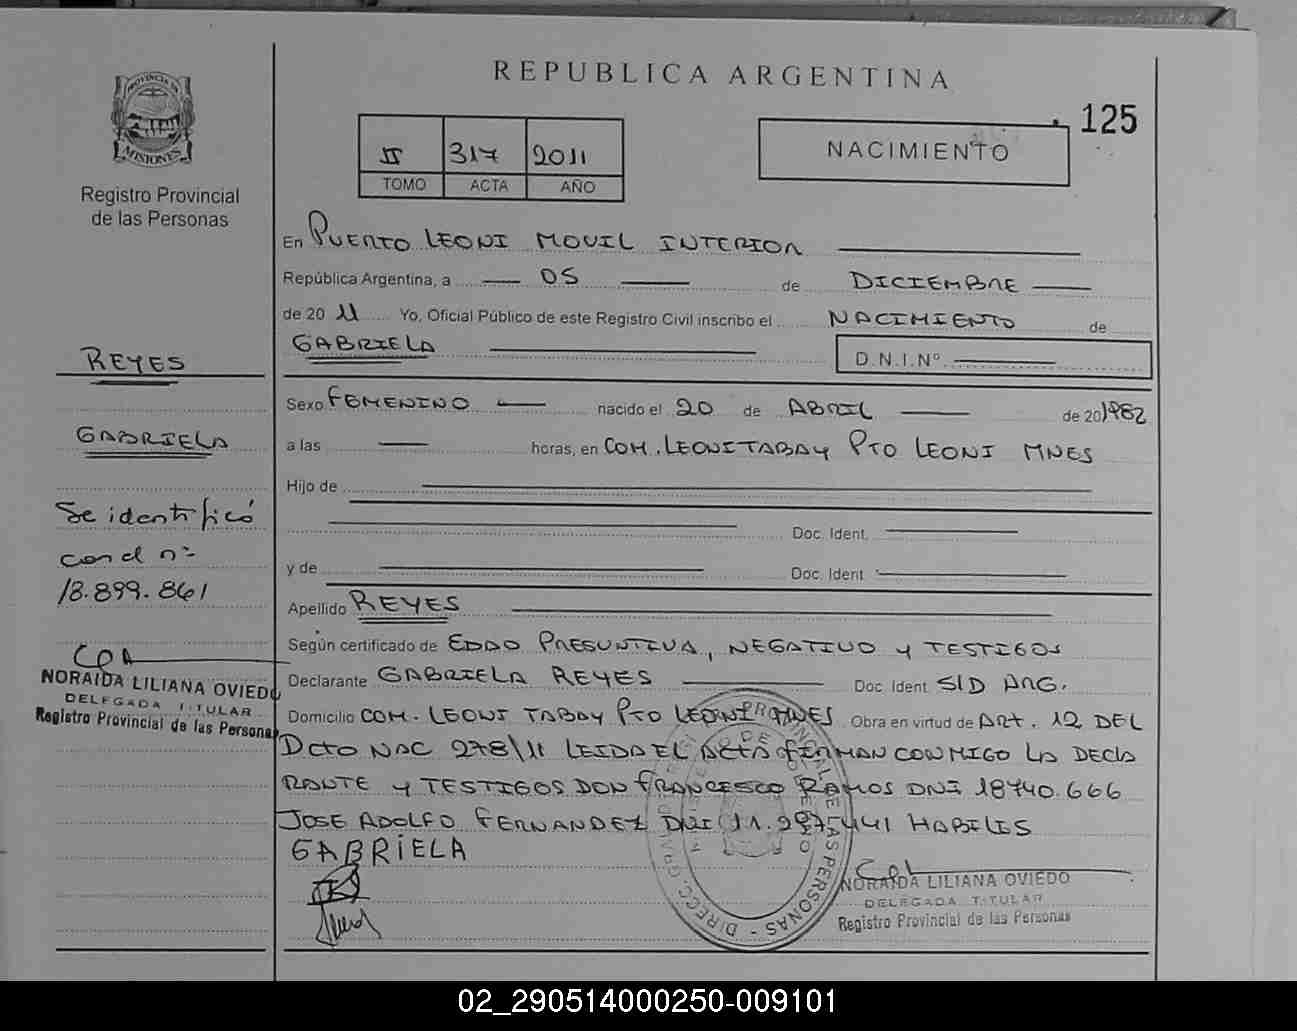 REPUBLICA ARGENTINA
125
NACIMIENTO
II 317 2011
TOMO ACTA AÑO
PROVINCIA DE
MISIONES
Registro Provincial
de las Personas
En PUERTO LEONI MOVIL INTERIOR
República Argentina, a 05 de DICIEMBRE
de 20 11 Yo, Oficial Público de este Registro Civil inscribo el NACIMIENTO de
GABRIELA D.N.I.Nº
Sexo FEMENINO nacido el 20 de ABRIL de 20 1982
a las horas, en COM. LEONI TABAY PTO LEONI MNES
Hijo de
Doc. Ident.
y de Doc. Ident
Apellido REYES
Según certificado de EDAD PRESUNTIVA, NEGATIVO Y TESTIGOS
Declarante GABRIELA REYES Doc. Ident S/D ARG.
Domicilio COM. LEONI TABAY PTO LEONI MNES Obra en virtud de ART. 12 DEL
DCTO NAC 278/11 LEIDA EL ACTA FIRMAN CONMIGO LA DECLA
RANTE Y TESTIGOS DON FRANCESCO RAMOS DNI 18740.666
JOSE ADOLFO FERNANDEZ DNI 11.2975441 HABILES
GABRIELA
NORAIDA LILIANA OVIEDO
DELEGADA TITULAR
Registro Provincial de las Personas
REYES
GABRIELA
Se identificó
con d nº
18.899.861
NORAIDA LILIANA OVIEDO
DELEGADA TITULAR
Registro Provincial de las Personas
02_290514000250-009101